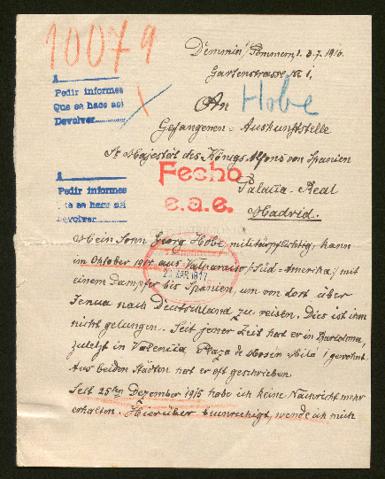 10079
Demmin/Pommern, d. 3.7.1916.
Gartenstrasse № 1,
A
Pedir informes
Que se hace así
Devolver
An Hobe
Gefangenen-Auskunftstelle
Sr Majestät des Königs Alfons von Spanien
Fecho
e.a.e.
A
Pedir informes
Que se hace así
Devolver
Palacia-Real
Madrid.
Mein Sohn Georg Hobe, militärpflichtig, kam
im Oktober 1915 aus Valparaiso/Süd-Amerika/ mit
einem Dampfer bis Spanien, um von dort über
Genua nach Deutschland zu reisen. Dies ist ihm
nicht gelungen. Seit jener Zeit hat er in Barcelona,
zuletzt in Valencia Plaza de Mosén Milá/ gewohnt.
Aus beiden Städten hat er oft geschrieben
Seit 25ten Dezember 1915 habe ich keine Nachricht mehr
erhalten. Hierüber beunruhigt, wende ich mich